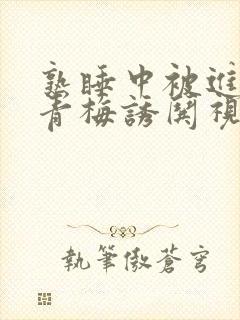 熟睡中被進
青梅誘鬨視
執筆傲蒼穹